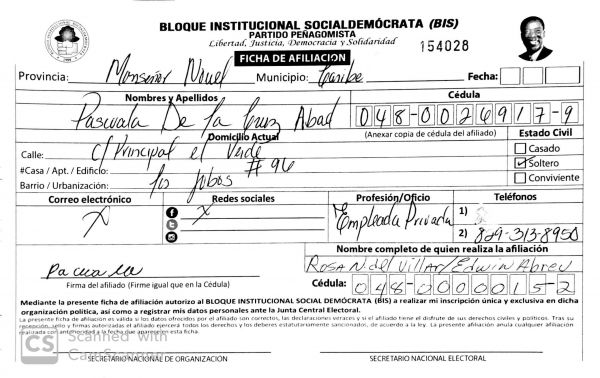 BLOQUE INSTITUCIONAL SOCIALDEMÓCRATA (BIS)
PARTIDO PEÑAGOMISTA
Libertad, Justicia, Democracia y Solidaridad
154028
FICHA DE AFILIACIÓN
Provincia: Monseñor Nouel Municipio: Caribe Fecha:
Nombres y Apellidos Cédula
Pascuala De la Cruz Abad 048-0026917-9
Domicilio Actual (Anexar copia de cédula del afiliado) Estado Civil
Calle: c/ Principal el Verde Casado
#Casa / Apt. / Edificio: # 96 Soltero
Barrio / Urbanización: los Jobos Conviviente
Correo electrónico Redes sociales Profesión/Oficio Teléfonos
X X Empleada Privada 1)
2) 829-313-8950
Nombre completo de quien realiza la afiliación
Rosa N del Villar/Edwin Abreu
Pacuala
Firma del afiliado (Firme igual que en la Cédula) Cédula: 048-0000015-2
Mediante la presente ficha de afiliación autorizo al BLOQUE INSTITUCIONAL SOCIAL DEMÓCRATA (BIS) a realizar mi inscripción única y exclusiva en dicha
organización política, así como a registrar mis datos personales ante la Junta Central Electoral.
La presente ficha de afiliación es valida si los datos ofrecidos por el afiliado son correctos, las declaraciones veraces y si el afiliado tiene el disfrute de sus derechos civiles y políticos. Tras su
recepción, sello y firmas autorizadas el afiliado ejercerá todos los derechos y los deberes estatutariamente sancionados, de acuerdo a la ley. La presente afiliación anula cualquier afiliación
realizada con anterioridad a la fecha que aparece en esta ficha.
CS Scanned with
CamScanner
SECRETARIO NACIONAL DE ORGANIZACIÓN SECRETARIO NACIONAL ELECTORAL